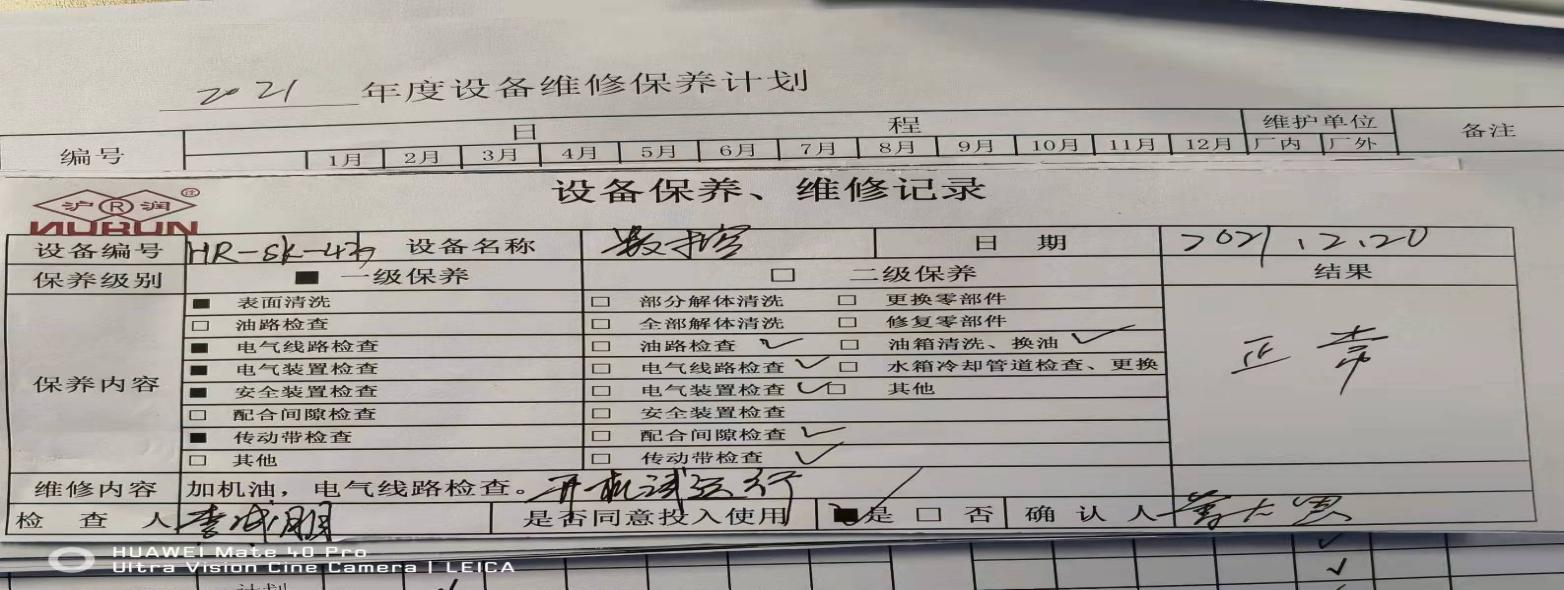 2021 年度设备维修保养计划
编号 日 程 维护单位 备注
1月 2月 3月 4月 5月 6月 7月 8月 9月 10月 11月 12月 厂内 厂外
沪R润
HURUN
设备保养、维修记录
设备编号 HR-SK- 设备名称 数控 日 期 2021.12.20
保养级别 ■ 一级保养 □ 二级保养 结果
保养内容
■ 表面清洗 □ 部分解体清洗 □ 更换零部件
□ 油路检查 □ 全部解体清洗 □ 修复零部件
■ 电气线路检查 □ 油路检查 ✓ □ 油箱清洗、换油 ✓
正常
■ 电气装置检查 □ 电气线路检查 ✓ □ 水箱冷却管道检查、更换
■ 安全装置检查 □ 电气装置检查 ✓ □ 其他
□ 配合间隙检查 □ 安全装置检查
■ 传动带检查 □ 配合间隙检查 ✓
□ 其他 □ 传动带检查 ✓
维修内容 加机油，电气线路检查。开机试运行
检 查 人 李 是否同意投入使用 ■是 □ 否 确 认 人
HUAWEI Mate 40 Pro
Ultra Vision Cine Camera | LEICA
计划